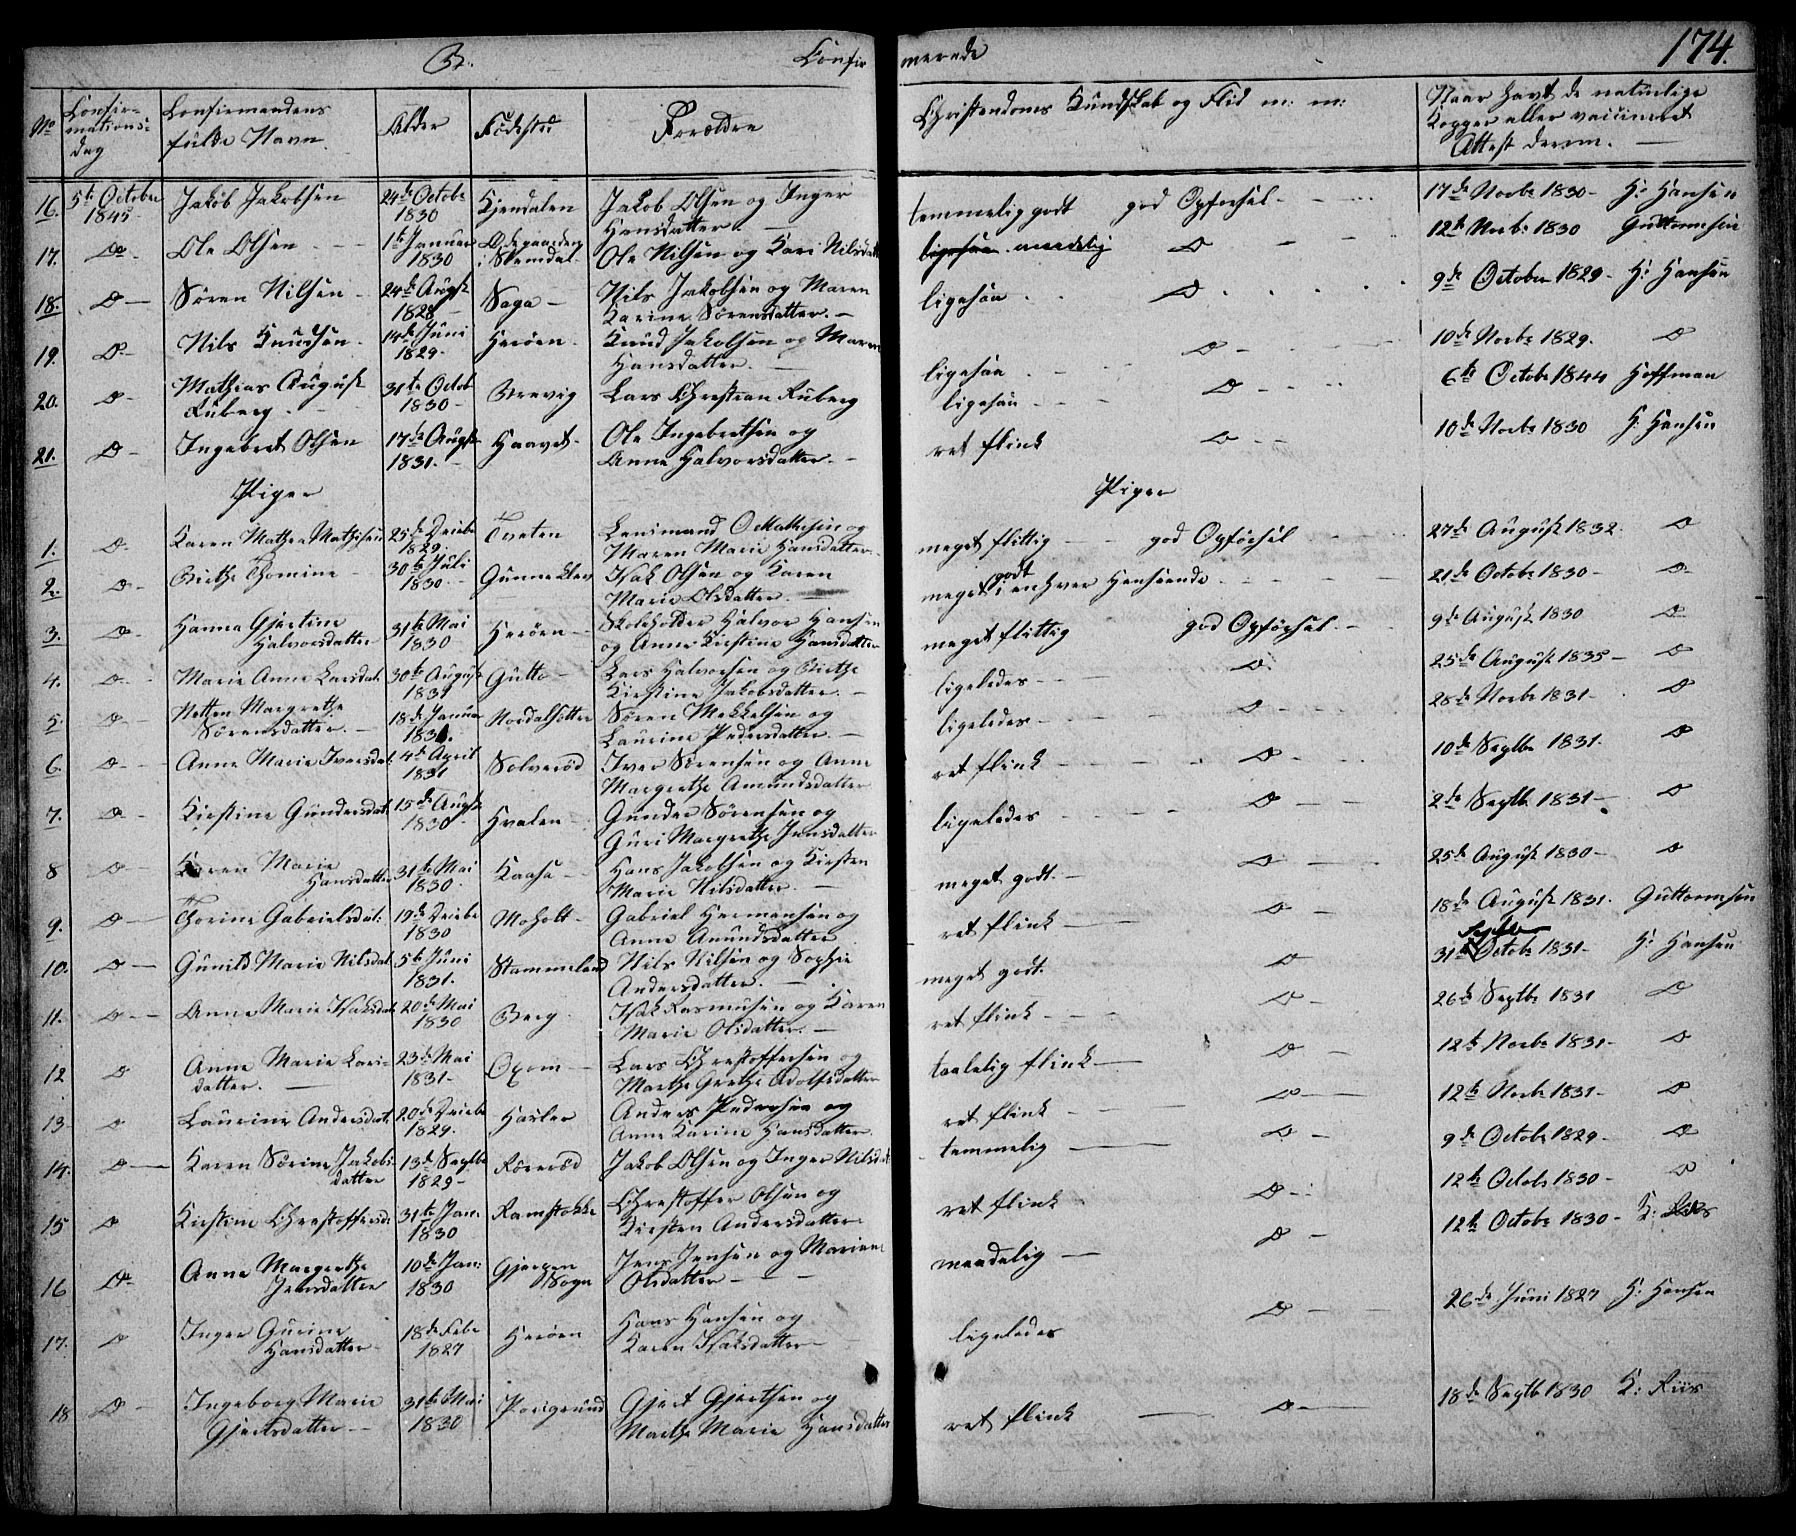 B. Confirmerede 174.
No Confirmations: dag Confirmandens fulde Navn. Alder Födested Forældre Christendoms Kundskab og Flid m: m: Naar havt de naturlige Kopper eller vaccineret Attest derom.
16. 5te October 1845 Jakob Jakobsen 24de Octobr 1830 Kjendalen Jakob Olsen og Inger Hansdatter. temmelig godt god Opförsel 17de Novbr 1830 H: Hansen
17. Do Ole Olsen 1te Januar 1830 Ödegaarden i Skemdal Ole Nilsen og Kari Nilsdatt ligesaa maadelig Do 12te Novbr 1830 Guttormsen
18. Do Sören Nilsen 24de Augst 1828 Saga Nils Jakobsen og Maren Karine Sörensdatter. ligesaa Do 9de October 1829 H: Hansen
19. Do Nils Knudsen 14de Juni 1829 Heröen Knud Jakobsen og Maren Hansdatter. ligesaa Do 10de Novbr 1829. Do
20. Do Mathias August Ruberg 31te Octob 1830 Brevig Lars Christian Ruberg ligesaa Do 6te Octobr 1844 Hoffman
21. Do Ingebret Olsen 17de Augst 1831. Haavet Ole Ingebretsen og Anne Halvorsdatter. ret flink Do 10de Novbr 1830 H: Hansen
Piger Piger
1. Do Karen Mathea Mathisen 25de Decbr 1829. Tveten Lensmand O Mathisen og Maren Marie Hansdatter. meget flittig god Opförsel 27de August 1832. Do
2. Do Birthe Thomine 30te Juli 1830. Gunneklev Isak Olsen og Karen Marie Olsdatter. meget godt i enhver Henseende 21de Octobr 1830 Do
3. Do Hanna Gjertine Halvorsdatter 31te Mai 1830 Heröen Skoleholder Halvor Hansen og Anne Kirstine Hansdatter meget flittig god Opförsel 9de August 1830 Do
4. Do Marie Anne Larsdat. 30te August 1831 Gutte Lars Halvorsen og Birthe Kirstine Jakobsdatter. ligeledes Do 25de August 1835 Do
5. Do Margrethe Sörensdatter. 18de Januar Nordalsetter Sören Mekkelsen og Laurine Pedersdatter. ligeledes Do 28de Novbr 1831 Do
6. Do Anne Marie Iversdat. 4de April 1831 Solveröd Iver Sörensen og Anne Margrethe Amundsdatter ret flink Do 10de Septbr 1831. Do
7. Do Kirstine Gundersdat. 15de Augst 1830 Hvalen Gunder Sörensen og Guri Margrethe Jensdatter ligeledes Do 2de Septbr 1831 Do
8 Do Karen Marie Hansdatter 31te Mai 1830. Kaasa Hans Jakobsen og Kirsten Marie Nilsdatter. meget godt. Do 25de August 1830 Do
9. Do Thorine Gabrielsdat: 19de Decbr 1830 Moholt Gabriel Hermansen og Anne Amundsdatter ret flink Do 18de August 1831. Guttormsen
10. Do Gunild Marie Nilsdat. 5te Juni 1831. Stammeland Nils Nilsen og Sophie Andersdatter. meget godt. Do 31te Septbr Octobr 1831 H: Hansen
11. Do Anne Marie Isaksdat. 20de Mai 1830 Berg Isak Rasmusen og Karen Marie Olsdatter. ret flink Do 26de Septbr 1831 Do
12 Do Anne Marie Larsdatter. 23de Mai 1831 Oxom Lars Christoffersen og Marthe Grethe Adolfsdatter taalelig flink Do 12te Novbr 1831 Do
13. Do Laurine Andersdat. 20de Decbr 1829. Hasler Anders Pedersen og Anne Karine Hansdatter. ret flink Do 12te Novbr 1831 Do
14. Do Karen Sörine Jakobsdatter 13de Septbr 1829 Röreröd Jakob Olsen og Inger Nilsdat temmelig Do 9de Octobr 1829 Do
15 Do Kirstine Christoffersd: 31te Jan: 1830 Ramstokke Christoffer Olsen og Kirsten Andersdatter. ret flink Do 12te Octobr 1830 Do
16 Do Anne Margrethe Jensdatter 10de Jan: 1830 Gjerpen Sogn Jens Jensen og Mariem Olsdatter maadelig Do 12te Octobr 1830 K: Riis
17. Do Inger Gurine Hansdatter 18de Febr 1827 Heröen Hans Hansen og Karen Isaksdatter ligeledes Do 26de Juni 1827 H: Hansen
18 Do Ingeborg Marie Gjertsdatter 31te Mai 1830 Porsgrund Gjert Gjertsen og Marthe Marie Hansdatter ret flink Do 18de Septbr 1830 K: Riis